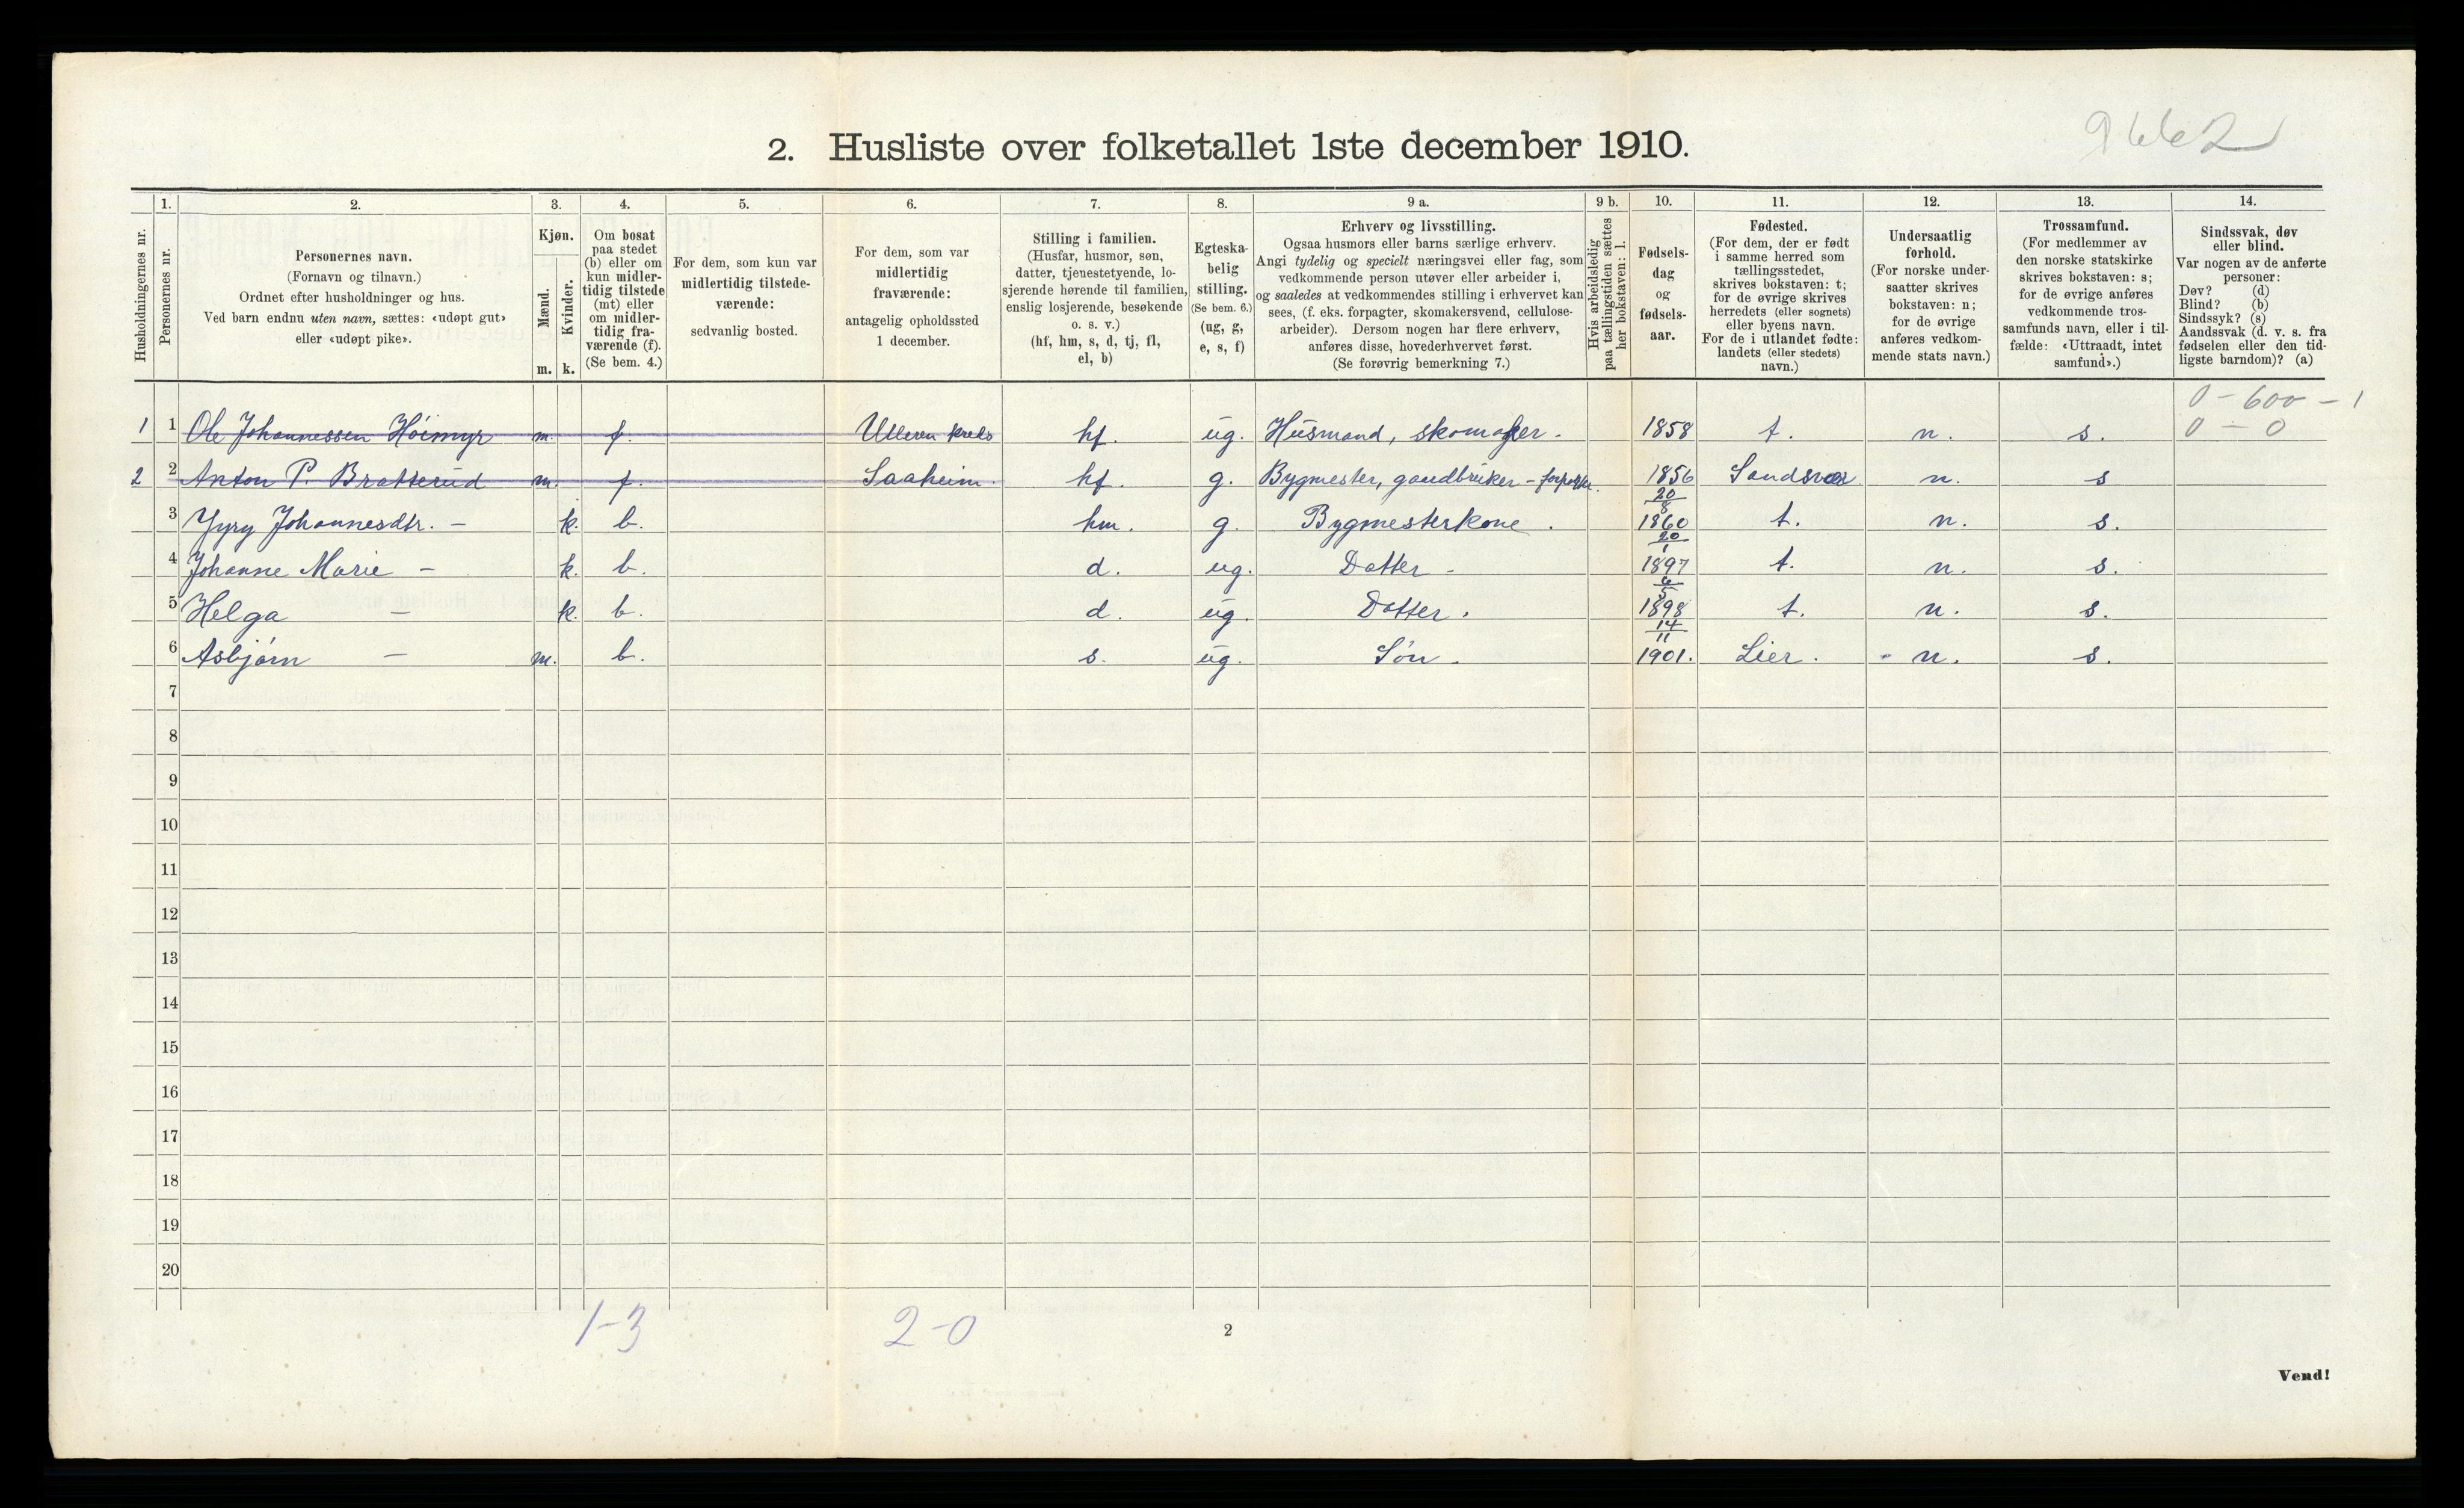 9662
2. Husliste over folketallet 1ste december 1910.
1. 2. 3. 4. 5. 6. 7. 8. 9 a. 9 b. 10. 11. 12. 13. 14.
Husholdningernes nr.
Personernes nr.
Personernes navn.
(Fornavn og tilnavn.)
Ordnet efter husholdninger og hus.
Ved barn endnu uten navn, sættes: «udøpt gut»
eller «udøpt pike».
Kjøn.
Mænd.
Kvinder.
m. k.
Om bosat
paa stedet
(b) eller om
kun midler-
tidig tilstede
(mt) eller
om midler-
tidig fra-
værende (f).
(Se bem. 4.)
For dem, som kun var
midlertidig tilstede-
værende:
sedvanlig bosted.
For dem, som var
midlertidig
fraværende:
antagelig opholdssted
1 december.
Stilling i familien.
(Husfar, husmor, søn,
datter, tjenestetyende, lo-
sjerende hørende til familien,
enslig losjerende, besøkende
o. s. v.)
(hf, hm, s, d, tj, fl,
el, b)
Egteska-
belig
stilling.
(Se bem. 6.)
(ug, g,
e, s, f)
Erhverv og livsstilling.
Ogsaa husmors eller barns særlige erhverv.
Angi tydelig og specielt næringsvei eller fag, som
vedkommende person utøver eller arbeider i,
og saaledes at vedkommendes stilling i erhvervet kan
sees, (f. eks. forpagter, skomakersvend, cellulose-
arbeider). Dersom nogen har flere erhverv,
anføres disse, hovederhvervet først.
(Se forøvrig bemerkning 7.)
Hvis arbeidsledig
paa tællingstiden sættes
her bokstaven: l.
Fødsels-
dag
og
fødsels-
aar.
Fødested.
(For dem, der er født
i samme herred som
tællingsstedet,
skrives bokstaven: t;
for de øvrige skrives
herredets (eller sognets)
eller byens navn.
For de i utlandet fødte:
landets (eller stedets)
navn.)
Undersaatlig
forhold.
(For norske under-
saatter skrives
bokstaven: n;
for de øvrige
anføres vedkom-
mende stats navn.)
Trossamfund.
(For medlemmer av
den norske statskirke
skrives bokstaven: s;
for de øvrige anføres
vedkommende tros-
samfunds navn, eller i til-
fælde: «Uttraadt, intet
samfund».)
Sindssvak, døv
eller blind.
Var nogen av de anførte
personer:
Døv? (d)
Blind? (b)
Sindssyk? (s)
Aandssvak (d. v. s. fra
fødselen eller den tid-
ligste barndom)? (a)
0 - 600 - 1
1 1 Ole Johannessen Höimyr m. f. Ulleren kreds hf. ug. Husmand, skomaker. 1858 t. n. s. 0 - 0
2 2 Anton P. Bratterud m. f. Saaheim. hf. g. Bygmester, gaardbruker - 1856 Sandsvær n. s
3 Jyry Johannesdtr. - k. b. hm. g. Bygmesterkone. 20/8 1860 t. n. s.
4 Johanne Marie - k. b. d. ug. Datter - 20/1 1897 t. n. s.
5 Helga - k. b. d. ug. Datter. 1898 t. n. s.
6 Asbjørn - m. b. s. ug. Søn. 14/11 1901. Lier. n. s.
7
8
9
10
11
12
13
14
15
16
17
18
19
20
1-3 2-0
2
Vend!